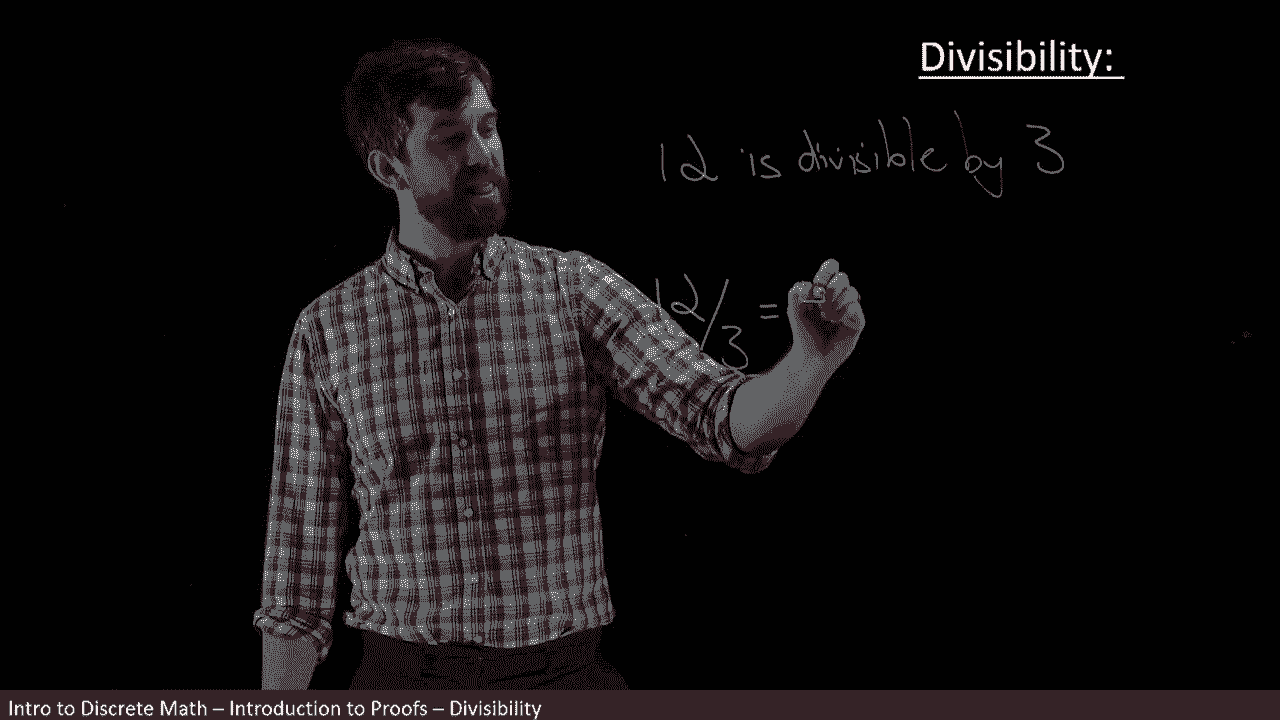 Divisibility:
12 is divisible by 3
12/3 =
Intro to Discrete Math – Introduction to Proofs – Divisibility